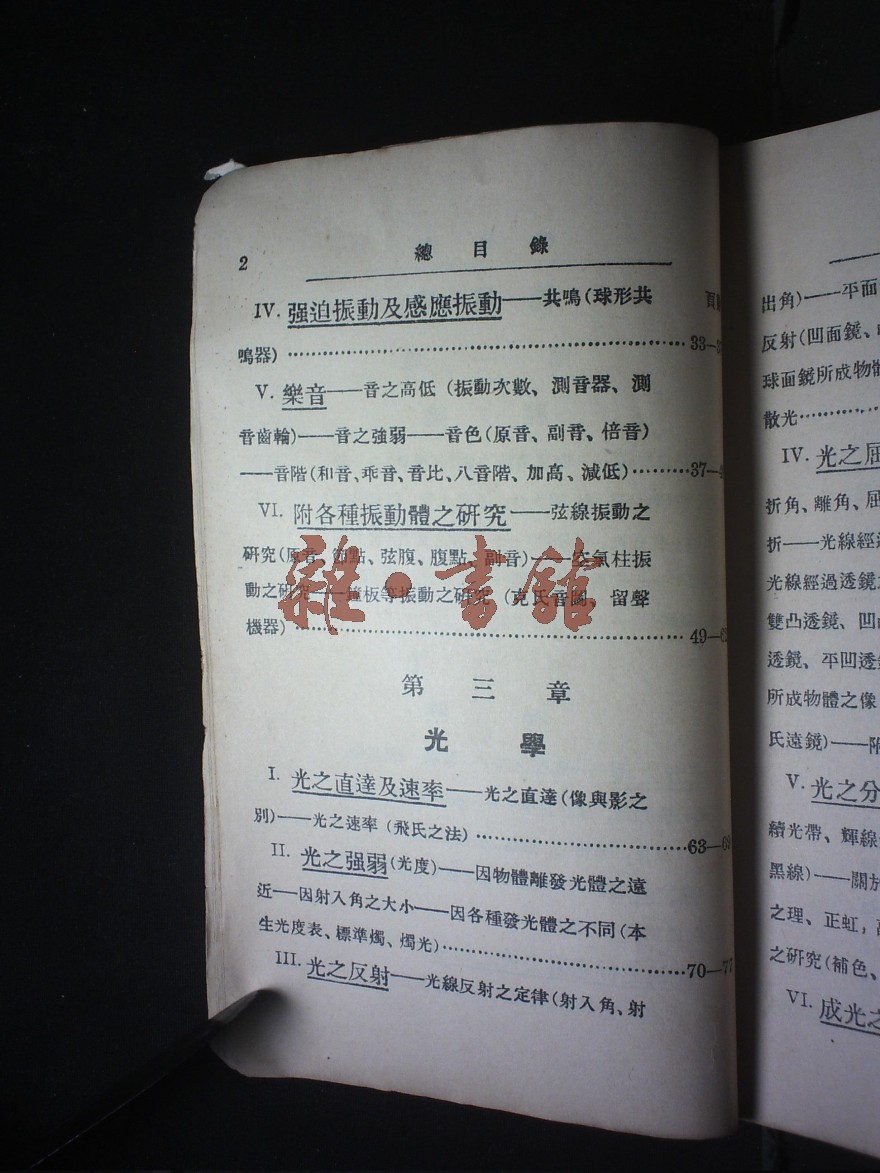 2 總目錄
頁
IV. 强迫振動及感應振動——共鳴(球形共
鳴器)……33—3
V. 樂音——音之高低(振動次數、測音器、測
音齒輪)——音之強弱——音色(原音、副音、倍音)
——音階(和音、乖音、音比、八音階、加高、減低)……37—
VI. 附各種振動體之研究——弦線振動之
研究(原音、節點、弦腹、腹點、副音)——空氣柱振
動之研究——鐘板等振動之研究(克氏音圖、留聲
機器)……49—6
第三章
光學
I. 光之直達及速率——光之直達(像與影之
別)——光之速率(飛氏之法)……63—69
II. 光之强弱(光度)——因物體離發光體之遠
近——因射入角之大小——因各種發光體之不同(本
生光度表、標準燭、燭光)……70—77
III. 光之反射——光線反射之定律(射入角、射
雜·書館
出角)——平面
反射(凹面鏡、
球面鏡所成物體
散光……
IV. 光之屈
折角、離角、屈
折——光線經過
光線經過透鏡
雙凸透鏡、凹凸
透鏡、平凹透鏡
所成物體之像
氏遠鏡)——附
V. 光之分
續光帶、輝線
黑線)——關於
之理、正虹,
之研究(補色、
VI. 成光之